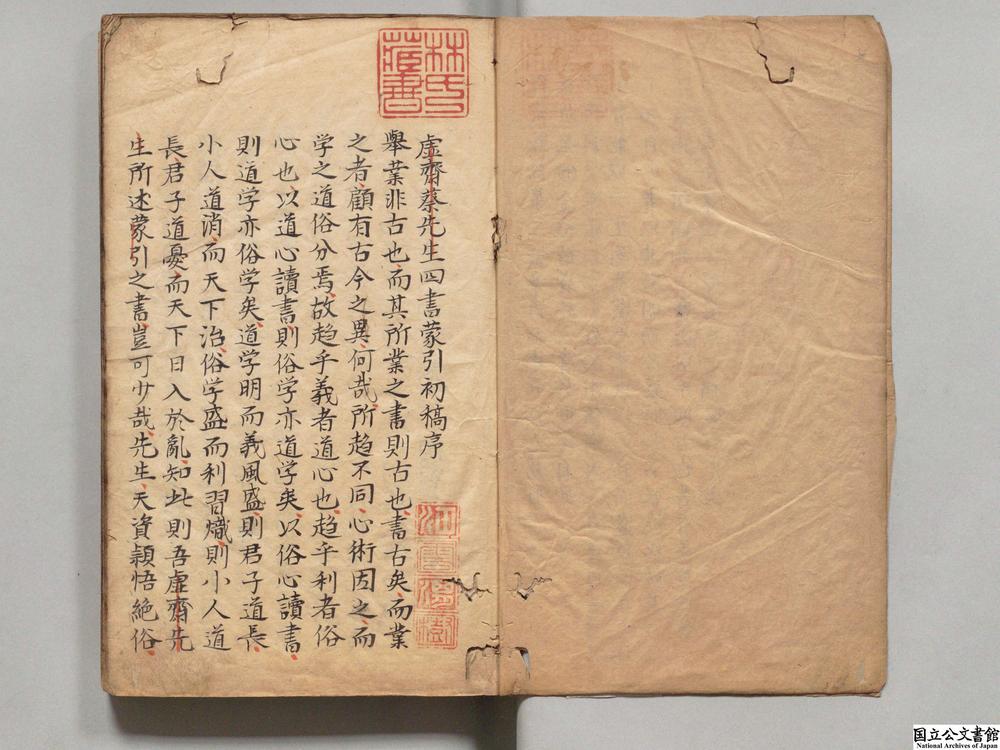 虛齋蔡先生四書蒙引初稿序
舉業非古也而其所業之書則古也書古矣而業
之者顧有古今之異何哉所趋不同心術因之而
学之道俗分焉故趋乎義者道心也趋乎利者俗
心也以道心讀書則俗学亦道学矣以俗心讀書
則道学亦俗学矣道学明而義風盛則君子道長
小人道消而天下治俗学盛而利習熾則小人道
長君子道憂而天下日入於亂知此則吾虛齋先
生所述蒙引之書豈可少哉先生天資穎悟絶俗
林氏
藏書
江雲渭樹
国立公文書館
National Archives of Japan